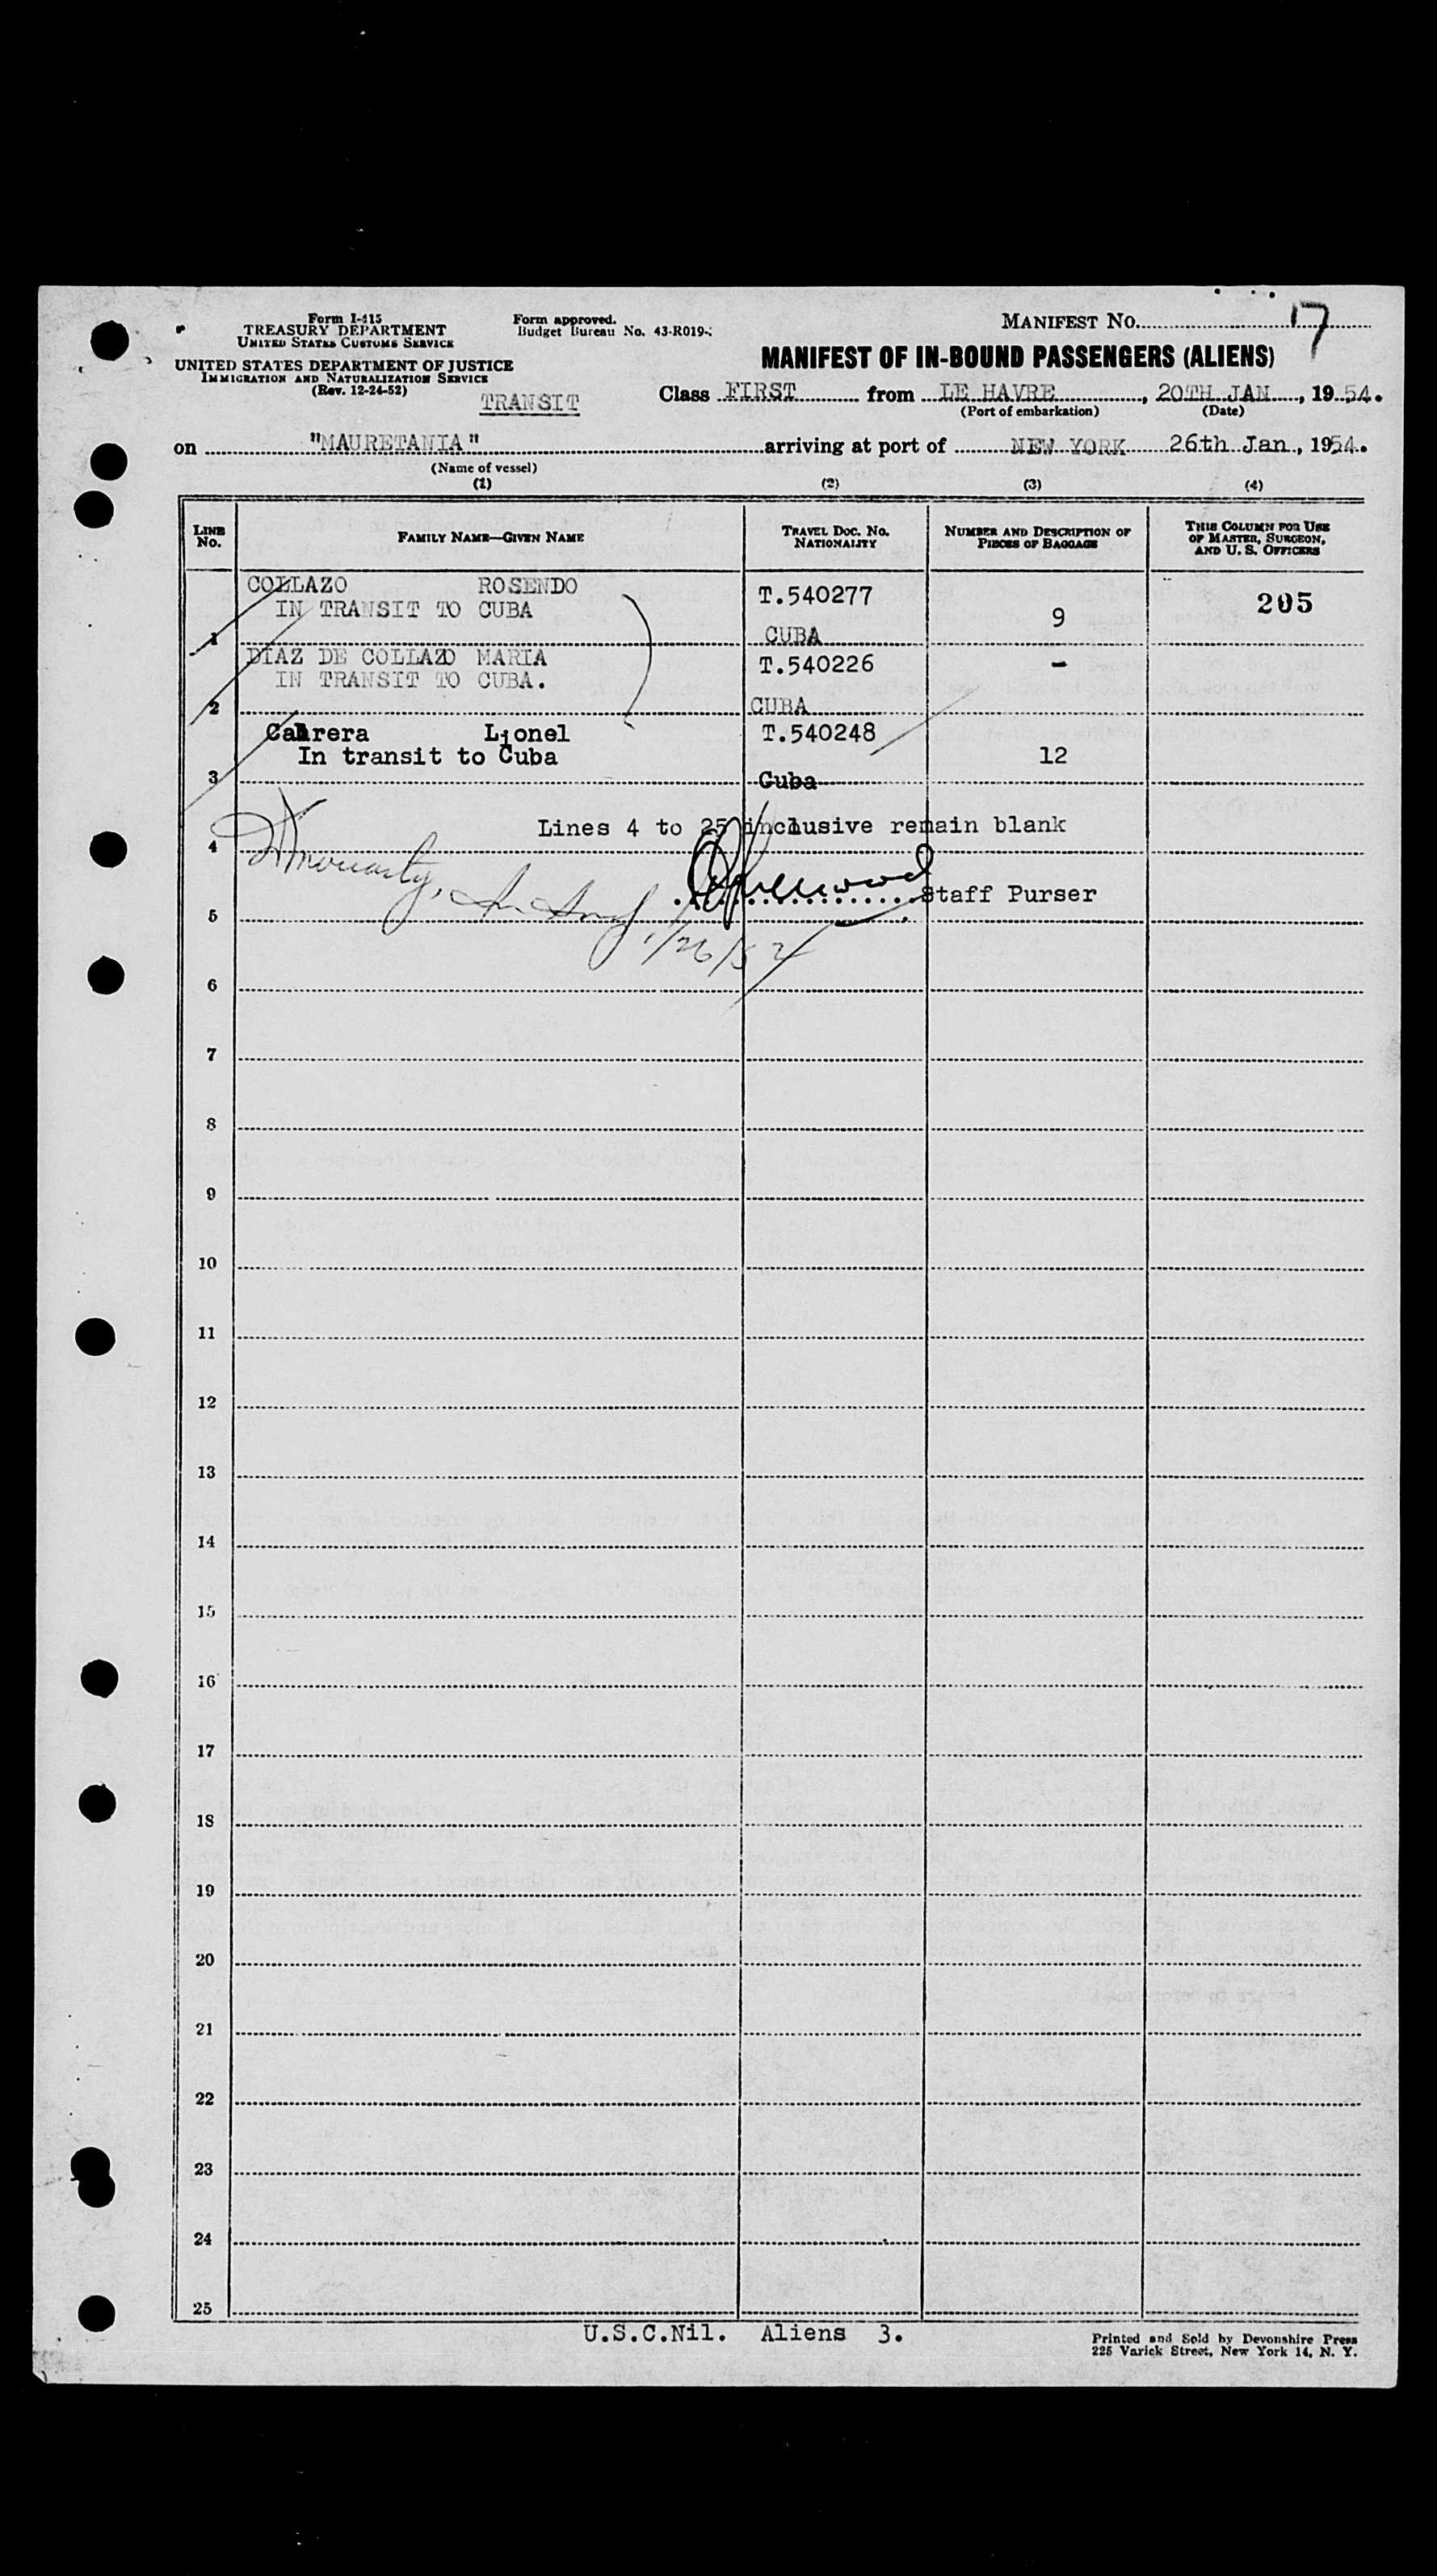 Form I-415
TREASURY DEPARTMENT
UNITED STATES CUSTOMS SERVICE
UNITED STATES DEPARTMENT OF JUSTICE
IMMIGRATION AND NATURALIZATION SERVICE
(Rev. 12-24-52)
TRANSIT
Form approved.
Budget Bureau No. 43-R019-
MANIFEST No. 17
MANIFEST OF IN-BOUND PASSENGERS (ALIENS)
Class FIRST from LE HAVRE, 20TH JAN, 1954.
(Port of embarkation) (Date)
on "MAURETANIA" arriving at port of NEW YORK 26th Jan, 1954.
(Name of vessel)
(1) (2) (3) (4)
LINE No. FAMILY NAME—GIVEN NAME TRAVEL DOC. NO. NATIONALITY NUMBER AND DESCRIPTION OF PIECES OF BAGGAGE THIS COLUMN FOR USE OF MASTER, SURGEON, AND U. S. OFFICERS
COLLAZO ROSENDO T.540277 205
IN TRANSIT TO CUBA 9
1 CUBA
DIAZ DE COLLAZO MARIA T.540226 -
IN TRANSIT TO CUBA.
2 CUBA
Cabrera Lionel T.540248
In transit to Cuba 12
3 Cuba
Lines 4 to 25 inclusive remain blank
4
Moriarty,
Staff Purser
5
1/26/54
6
7
8
9
10
11
12
13
14
15
16
17
18
19
20
21
22
23
24
25
U.S.C.Nil. Aliens 3.
Printed and Sold by Devonshire Press
225 Varick Street, New York 14, N. Y.